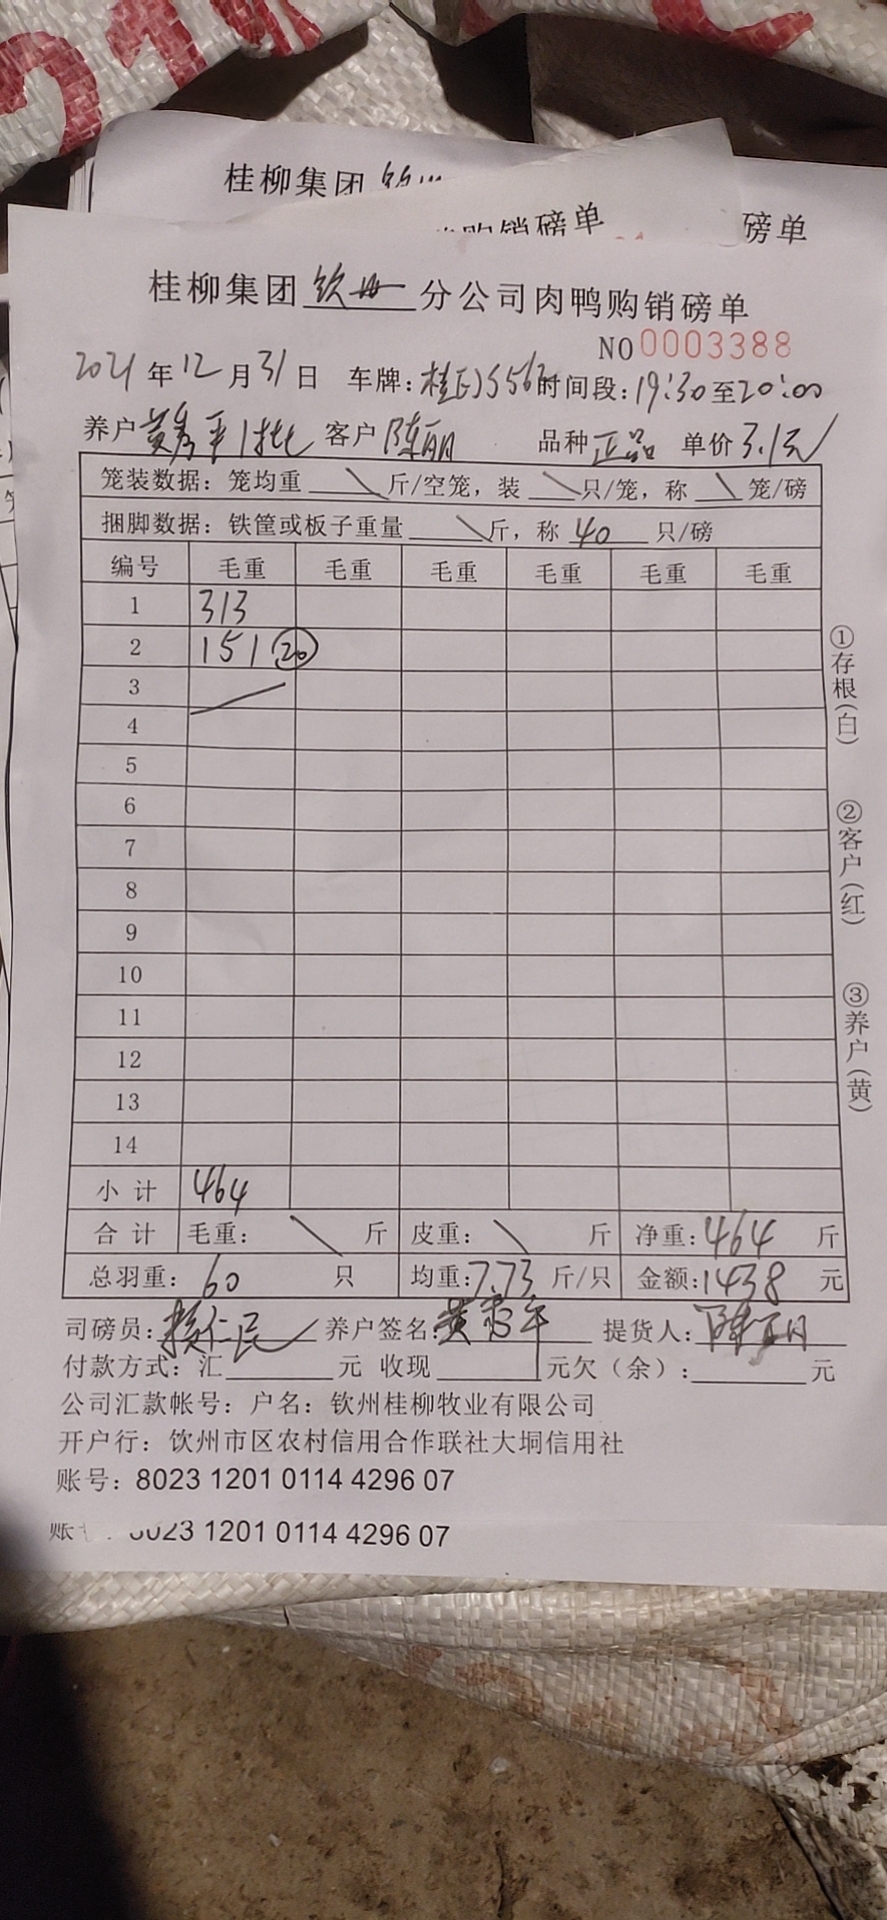 桂柳集团
购销磅单
磅单
桂柳集团钦州分公司肉鸭购销磅单
NO 0003388
2021年12月31日 车牌: 时间段:19:30至20:00
养户 黄秀平1批 客户 陈丽 品种 正品 单价 3.1元
笼装数据:笼均重 \ 斤/空笼,装 \ 只/笼,称 \ 笼/磅
捆脚数据:铁筐或板子重量 \ 斤,称 40 只/磅
编号 毛重 毛重 毛重 毛重 毛重 毛重
1 313
2 151 20
3
4
5
6
7
8
9
10
11
12
13
14
小计 464
合计 毛重: \ 斤 皮重: \ 斤 净重:464 斤
总羽重:60 只 均重:7.73 斤/只 金额:1438 元
司磅员:赖仁民 养户签名:黄秀平 提货人:陈丽
付款方式:汇 元 收现 元欠(余): 元
公司汇款帐号:户名:钦州桂柳牧业有限公司
开户行:钦州市区农村信用合作联社大垌信用社
账号:8023 1201 0114 4296 07
8023 1201 0114 4296 07
①存根(白)
②客户(红)
③养户(黄)